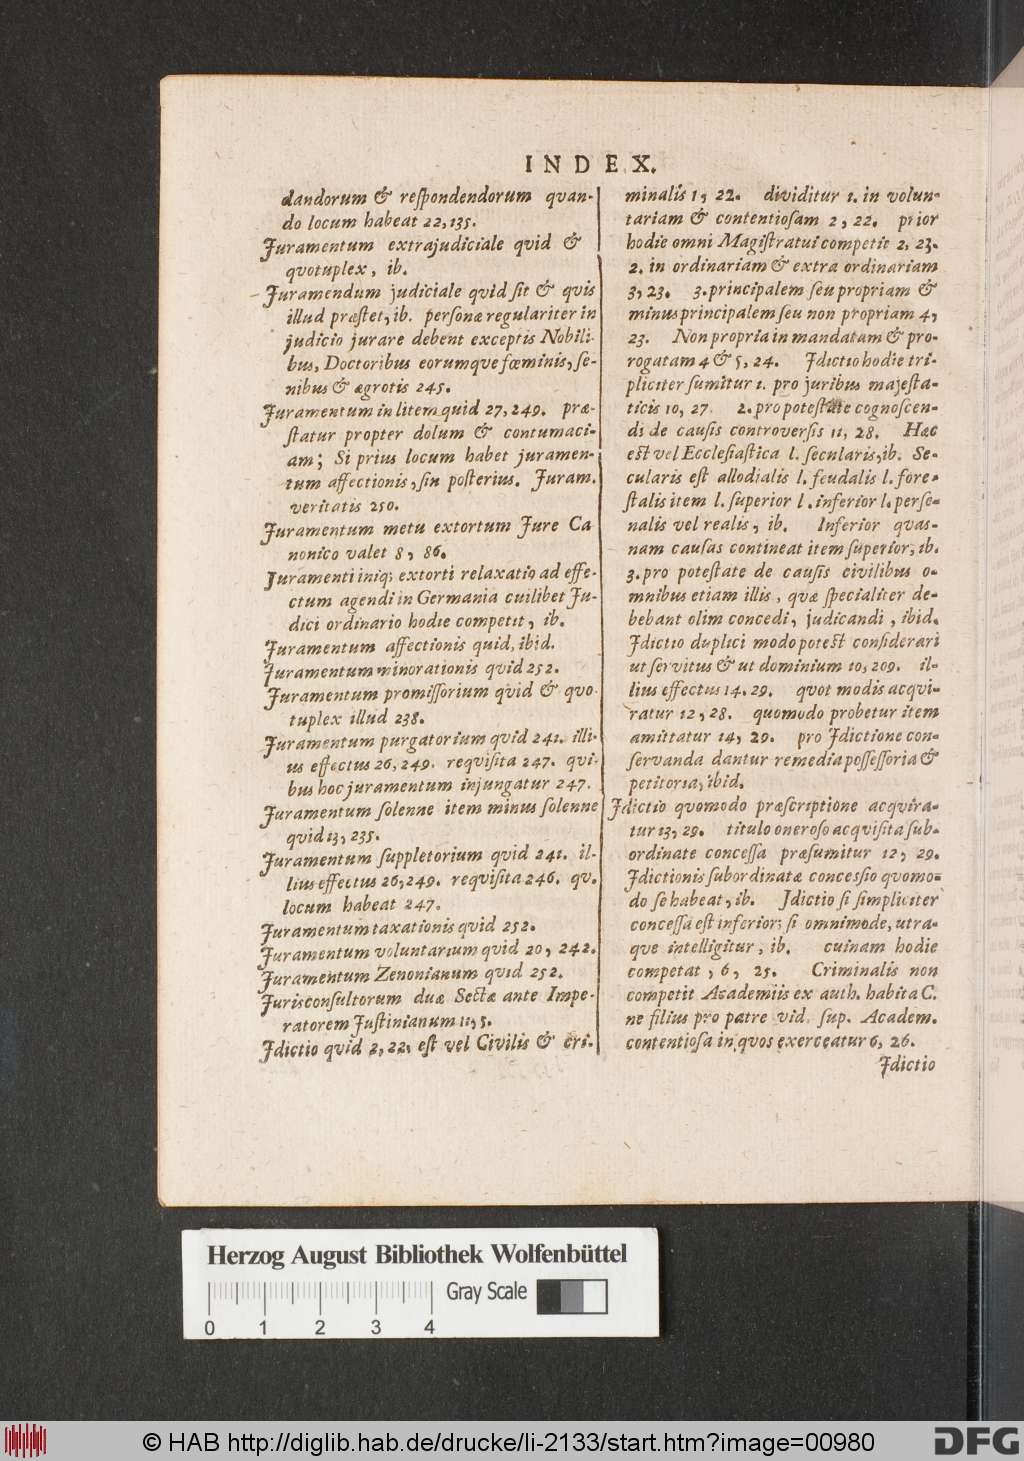 INDEX.
dandorum & reſpondendorum quan-
do locum habeat 22, 135.
Juramentum extrajudiciale quid &
quotuplex, ib.
Juramendum judiciale quid ſit & quis
illud præſtet, ib. perſonæ regulariter in
judicio jurare debent exceptis Nobili-
bus, Doctoribus eorumque fœminis, ſe-
nibus & ægrotis 245.
Juramentum in litem quid 27, 249. præ-
ſtatur propter dolum & contumaci-
am; Si prius locum habet juramen-
tum affectionis, ſin poſterius. Juram.
veritatis 250.
Juramentum metu extortum Jure Ca
nonico valet 8, 86.
Juramenti iniq; extorti relaxatio ad effe-
ctum agendi in Germania cuilibet Ju-
dici ordinario hodie competit, ib.
Juramentum affectionis quid, ibid.
Juramentum minorationis quid 252.
Juramentum promiſſorium quid & quo-
tuplex illud 238.
Juramentum purgatorium quid 241. illi-
us effectus 26, 249. requiſita 247. qui-
bus hoc juramentum injungatur 247.
Juramentum ſolenne item minus ſolenne
quid 13, 235.
Juramentum ſuppletorium quid 241. il-
lius effectus 26, 249. requiſita 246. qu.
locum habeat 247.
Juramentum taxationis quid 252.
Juramentum voluntarium quid 20, 242.
Juramentum Zenonianum quid 252.
Jurisconſultorum duæ Sectæ ante Impe-
ratorem Juſtinianum 11, 5.
Jdictio quid 2, 22, eſt vel Civilis & cri-
minalis 1, 22. dividitur 1. in volun-
tariam & contentioſam 2, 22. prior
hodie omni Magiſtratui competit 2, 23.
2. in ordinariam & extra ordinariam
3, 23. 3. principalem ſeu propriam &
minus principalem ſeu non propriam 4,
23. Non propria in mandatam & pro-
rogatam 4 & 5, 24. Jdictio hodie tri-
pliciter ſumitur 1. pro juribus majeſta-
ticis 10, 27. 2. pro poteſtate cognoſcen-
di de cauſis controverſis 11, 28. Hæc
eſt vel Eccleſiaſtica l. ſecularis, ib. Se-
cularis eſt allodialis l. feudalis l. fore-
ſtalis item l. ſuperior l. inferior l. perſo-
nalis vel realis, ib. Inferior quas-
nam cauſas contineat item ſuperior, ib.
3. pro poteſtate de cauſis civilibus o-
mnibus etiam illis, quæ ſpecialiter de-
bebant olim concedi, judicandi, ibid.
Jdictio duplici modo poteſt conſiderari
ut ſervitus & ut dominium 10, 209. il-
lius effectus 14. 29. quot modis acqui-
ratur 12, 28. quomodo probetur item
amittatur 14, 29. pro Jdictione con-
ſervanda dantur remedia poſſeſſoria &
petitoria, ibid.
Jdictio quomodo præſcriptione acquira-
tur 13, 29. titulo oneroſo acquiſita ſub-
ordinate conceſſa præſumitur 12, 29.
Jdictionis ſubordinatæ conceſſio quomo-
do ſe habeat, ib. Jdictio ſi ſimpliciter
conceſſa eſt inferior; ſi omnimode, utra-
que intelligitur, ib. cuinam hodie
competat, 6, 25. Criminalis non
competit Academiis ex auth. habita C.
ne filius pro patre vid. ſup. Academ.
contentioſa in quos exerceatur 6, 26.
Jdictio
Herzog August Bibliothek Wolfenbüttel
Gray Scale
0 1 2 3 4
© HAB http://diglib.hab.de/drucke/li-2133/start.htm?image=00980
DFG